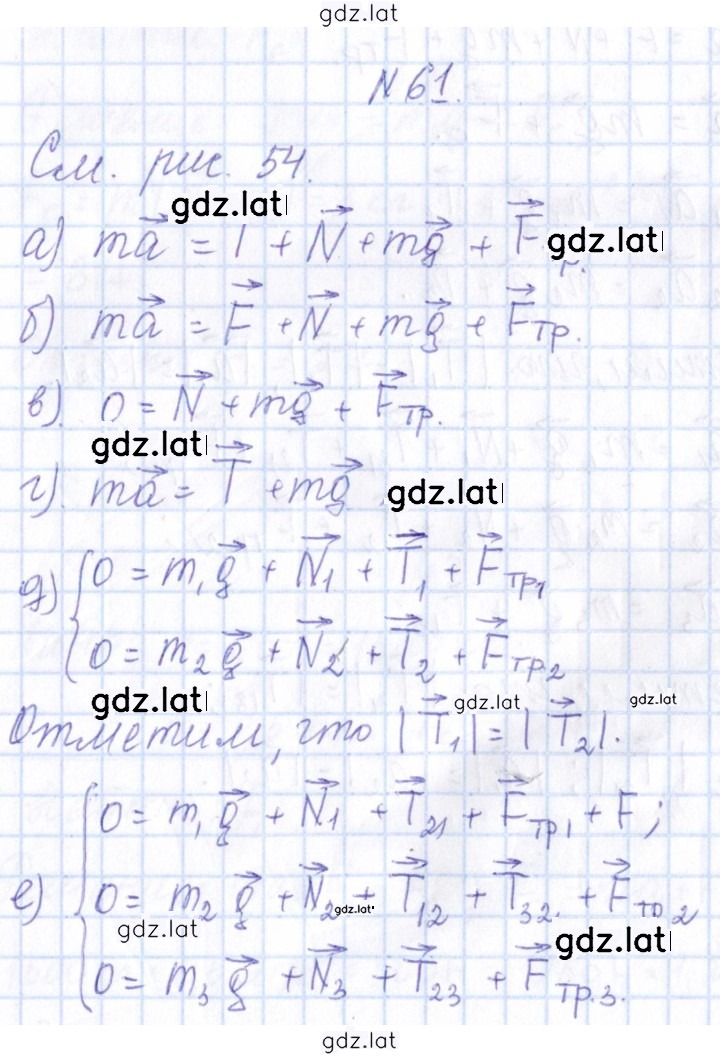 gdz.lat
№ 61.
См. рис. 54.
gdz.lat
а) ma⃗ = T⃗ + N⃗ + mg⃗ + F⃗
gdz.lat
б) ma⃗ = F⃗ + N⃗ + mg⃗ + F⃗тр.
в) 0 = N⃗ + mg⃗ + F⃗тр.
gdz.lat
г) ma⃗ = T⃗ + mg⃗
gdz.lat
д) { 0 = m₁g⃗ + N⃗₁ + T⃗₁ + F⃗тр1
0 = m₂g⃗ + N⃗₂ + T⃗₂ + F⃗тр.2
gdz.lat gdz.lat gdz.lat
Отметим, что |T⃗₁| = |T⃗₂|.
е) { 0 = m₁g⃗ + N⃗₁ + T⃗₂₁ + F⃗тр1 + F;
0 = m₂g⃗ + N⃗₂ + T⃗₁₂ + T⃗₃₂. + F⃗тр2
gdz.lat
gdz.lat gdz.lat
0 = m₃g⃗ + N⃗₃ + T⃗₂₃ + F⃗тр.3.
gdz.lat